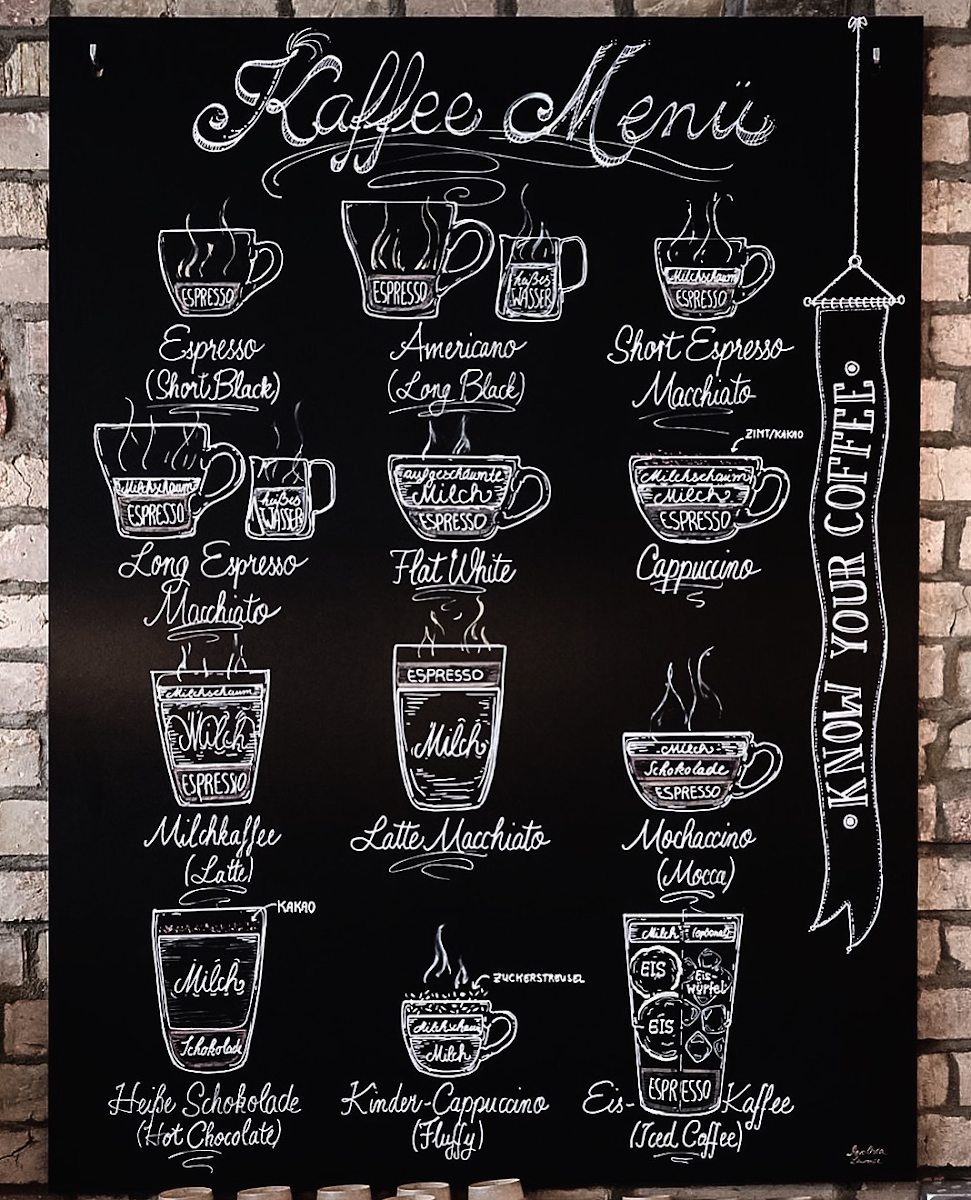 Kaffee Menü
ESPRESSO
Espresso
(Short Black)
ESPRESSO
heißes
WASSER
Americano
(Long Black)
Milchschaum
ESPRESSO
Short Espresso
Macchiato
Milchschaum
ESPRESSO
heißes
WASSER
Long Espresso
Macchiato
aufgeschäumte
Milch
ESPRESSO
Flat White
ZIMT/KAKAO
Milchschaum
Milch
ESPRESSO
Cappuccino
Milchschaum
Milch
ESPRESSO
Milchkaffee
(Latte)
ESPRESSO
Milch
Latte Macchiato
Milch
Schokolade
ESPRESSO
Mochaccino
(Mocca)
KAKAO
Milch
Schokolade
Heiße Schokolade
(Hot Chocolate)
ZUCKERSTREUSEL
Milchschaum
Milch
Kinder-Cappuccino
(Fluffy)
Milch (optional)
EIS
EIS
Eis-
würfel
ESPRESSO
Eis-Kaffee
(Iced Coffee)
KNOW YOUR COFFEE